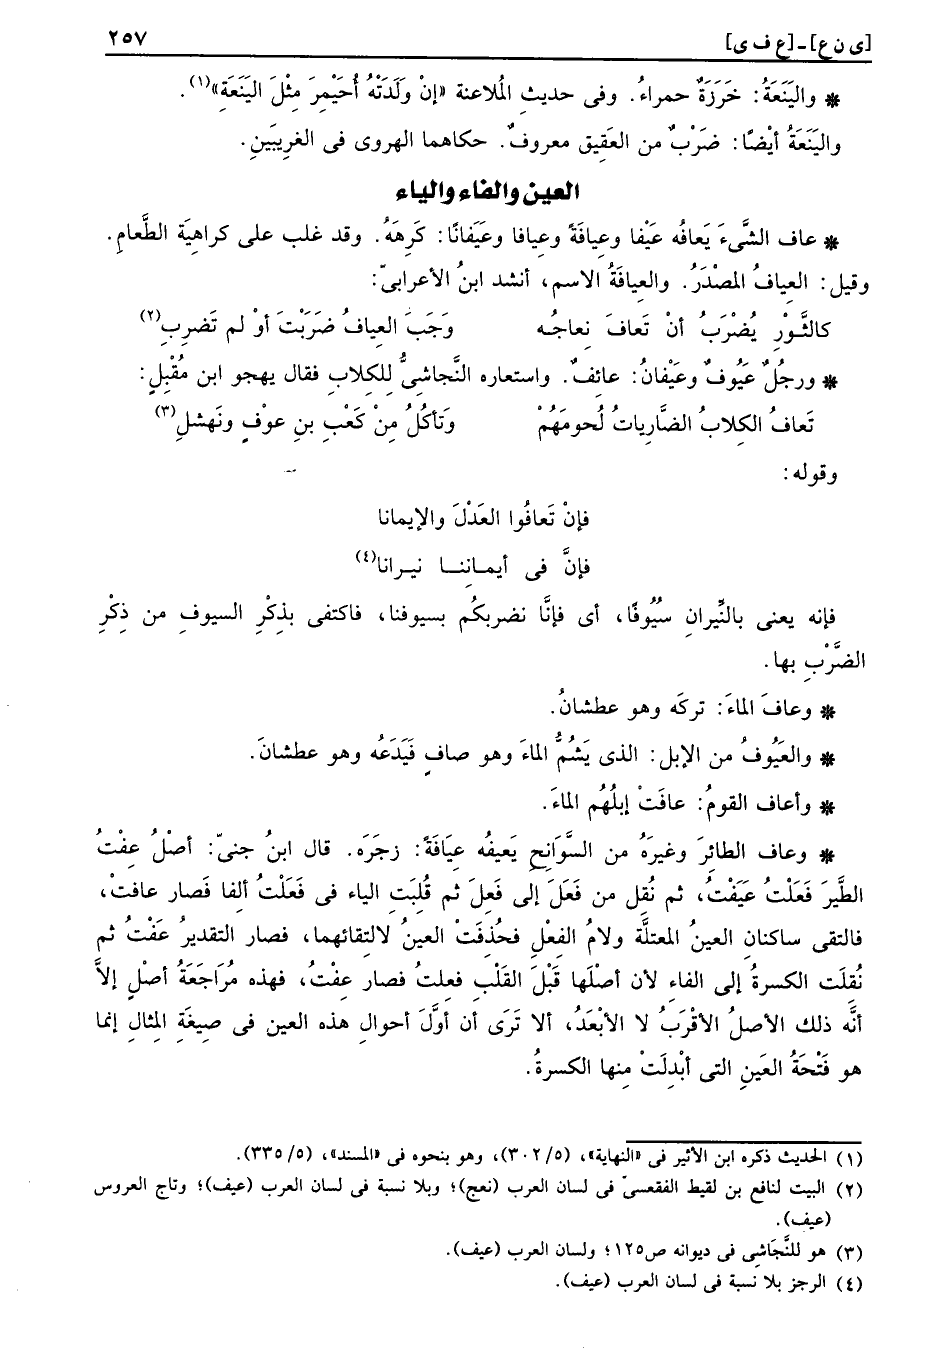 [ى ن ع] - [ع ف ى] ٢٥٧
* واليَنَعَةُ: خَرَزَةٌ حمراءُ. وفى حديث المُلاعنة «إنْ ولَدَتْهُ أُحَيْمِرَ مِثْلَ اليَنَعَةِ»(١).
واليَنَعَةُ أيْضًا: ضَرْبٌ من العَقِيق معروفٌ. حكاهما الهروى فى الغرِيبَينِ.
العين والفاء والياء
* عاف الشَّىءَ يَعافُه عَيْفا وعِيافَةً وعِيافا وعَيَفانًا: كَرِهَهُ. وقد غلب على كراهِيَة الطَّعام.
وقيل: العِيافُ المصْدَرُ. والعِيافَةُ الاسم، أنشد ابنُ الأعرابىّ:
كالثَّوْرِ يُضْرَبُ أنْ تَعافَ نِعاجُـه وَجَبَ العِيافُ ضَرَبْتَ أوْ لم تَضرِبِ(٢)
* ورجُلٌ عَيُوفٌ وعَيْفانُ: عائفٌ. واستعاره النَّجاشىُّ للكِلابِ فقال يهجو ابن مُقْبِلٍ:
تَعافُ الكِلابُ الضَّارِياتُ لُحومَهُمْ وَتأكُلُ مِنْ كَعْبِ بنِ عوْفٍ ونَهشلِ(٣)
وقوله:
فإنْ تَعافُوا العَدْلَ والإيمانا
فإنَّ فى أيمـانِنـا نيـرانا(٤)
فإنه يعنى بالنِّيرانِ سيُوفًا، أى فإنَّا نضربكُم بسيوفنا، فاكتفى بذِكْرِ السيوفِ من ذِكْرِ
الضَّرْبِ بها.
* وعافَ الماءَ: تركَه وهو عطشانُ.
* والعَيُوفُ من الإبل: الذى يَشُمُّ الماءَ وهو صافٍ فَيَدَعُه وهو عطشانَ.
* وأعاف القومُ: عافَتْ إبلُهُم الماءَ.
* وعاف الطائرَ وغيرَهُ من السَّوَانِحِ يَعيفُه عِيَافَةً: زجَرَه. قال ابنُ جنىّ: أصْلُ عِفْتُ
الطَّيرَ فَعَلْتُ عَيَفْتُ، ثم نُقِل من فَعَلَ إلى فَعِلَ ثم قُلِبَت الياء فى فَعَلْتُ ألفا فَصار عافتْ،
فالتقى ساكنان العينُ المعتلَّة ولامُ الفعْلِ فحُذفَتْ العينُ لالتقائهما، فصار التقديرُ عَفْتُ ثم
نُقِلَت الكسرةُ إلى الفاء لأن أصْلَها قَبْلَ القَلْبِ فعلتُ فصار عِفْتُ، فهذه مُرَاجَعَةُ أصْلٍ إلاَّ
أنَّه ذلك الأصلُ الأقْرَبُ لا الأبْعَدُ، ألا تَرَى أن أوَّلَ أحوالِ هذه العين فى صِيغَةِ المثالِ إنما
هو فَتْحَةُ العَينِ التى أبْدِلَتْ مِنها الكسرةُ.
(١) الحديث ذكره ابن الأثير فى «النهاية»، (٥/ ٣٠٢)، وهو بنحوه فى «المسند»، (٥/ ٣٣٥).
(٢) البيت لنافع بن لقيط الفقعسىّ فى لسان العرب (نعج)؛ وبلا نسبة فى لسان العرب (عيف)؛ وتاج العروس
(عيف).
(٣) هو للنَّجَاشِى فى ديوانه ص١٢٥؛ ولسان العرب (عيف).
(٤) الرجز بلا نسبة فى لسان العرب (عيف).